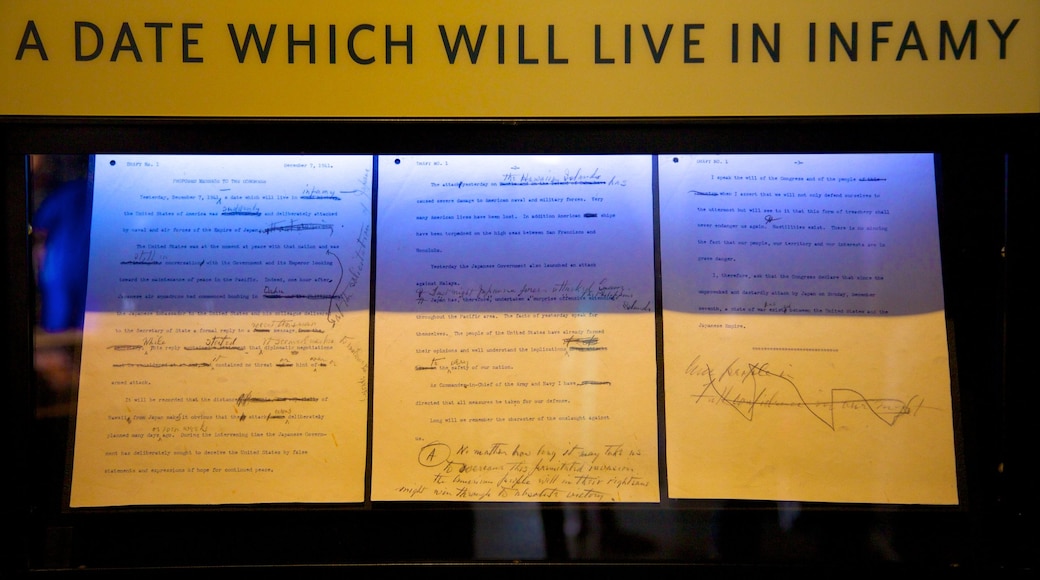 A DATE WHICH WILL LIVE IN INFAMY
DRAFT No. 1 December 7, 1941.
PROPOSED MESSAGE TO THE CONGRESS
infamy
Yesterday, December 7, 1941, a date which will live in
suddenly
the United States of America was and deliberately attacked
by naval and air forces of the Empire of Japan
The United States was at the moment at peace with that nation and was
still in
conversation with its Government and its Emperor looking
toward the maintenance of peace in the Pacific. Indeed, one hour after
Oahu
Japanese air squadrons had commenced bombing in
the Japanese Ambassador to the United States and his colleague delivered
to the Secretary of State a formal reply to a message
While This reply stated that diplomatic negotiations
it contained no threat hint of
armed attack.
It will be recorded that the distance of
Hawaii from Japan makes it obvious that the attack deliberately
or even weeks
planned many days ago. During the intervening time the Japanese Govern-
ment has deliberately sought to deceive the United States by false
statements and expressions of hope for continued peace.
DRAFT NO. 1 -2-
the Hawaiian Islands
The attack yesterday on has
caused severe damage to American naval and military forces. Very
many American lives have been lost. In addition American ships
have been torpedoed on the high seas between San Francisco and
Honolulu.
Yesterday the Japanese Government also launched an attack
against Malaya.
Last night Japanese forces attacked Guam
Philippine Islands
Japan has, therefore, undertaken a surprise offensive extending
throughout the Pacific area. The facts of yesterday speak for
themselves. The people of the United States have already formed
their opinions and well understand the implications
to the very safety of our nation.
As Commander-in-Chief of the Army and Navy I have
directed that all measures be taken for our defense.
Long will we remember the character of the onslaught against
us.
A No matter how long it may take us
to overcome this premeditated invasion
the American people will in their righteous
might win through to absolute victory.
DRAFT NO. 1 -3-
I speak the will of the Congress and of the people
when I assert that we will not only defend ourselves to
the uttermost but will see to it that this form of treachery shall
never endanger us again. Hostilities exist. There is no mincing
the fact that our people, our territory and our interests are in
grave danger.
I, therefore, ask that the Congress declare that since the
unprovoked and dastardly attack by Japan on Sunday, December
seventh, a state of war existed between the United States and the
Japanese Empire.